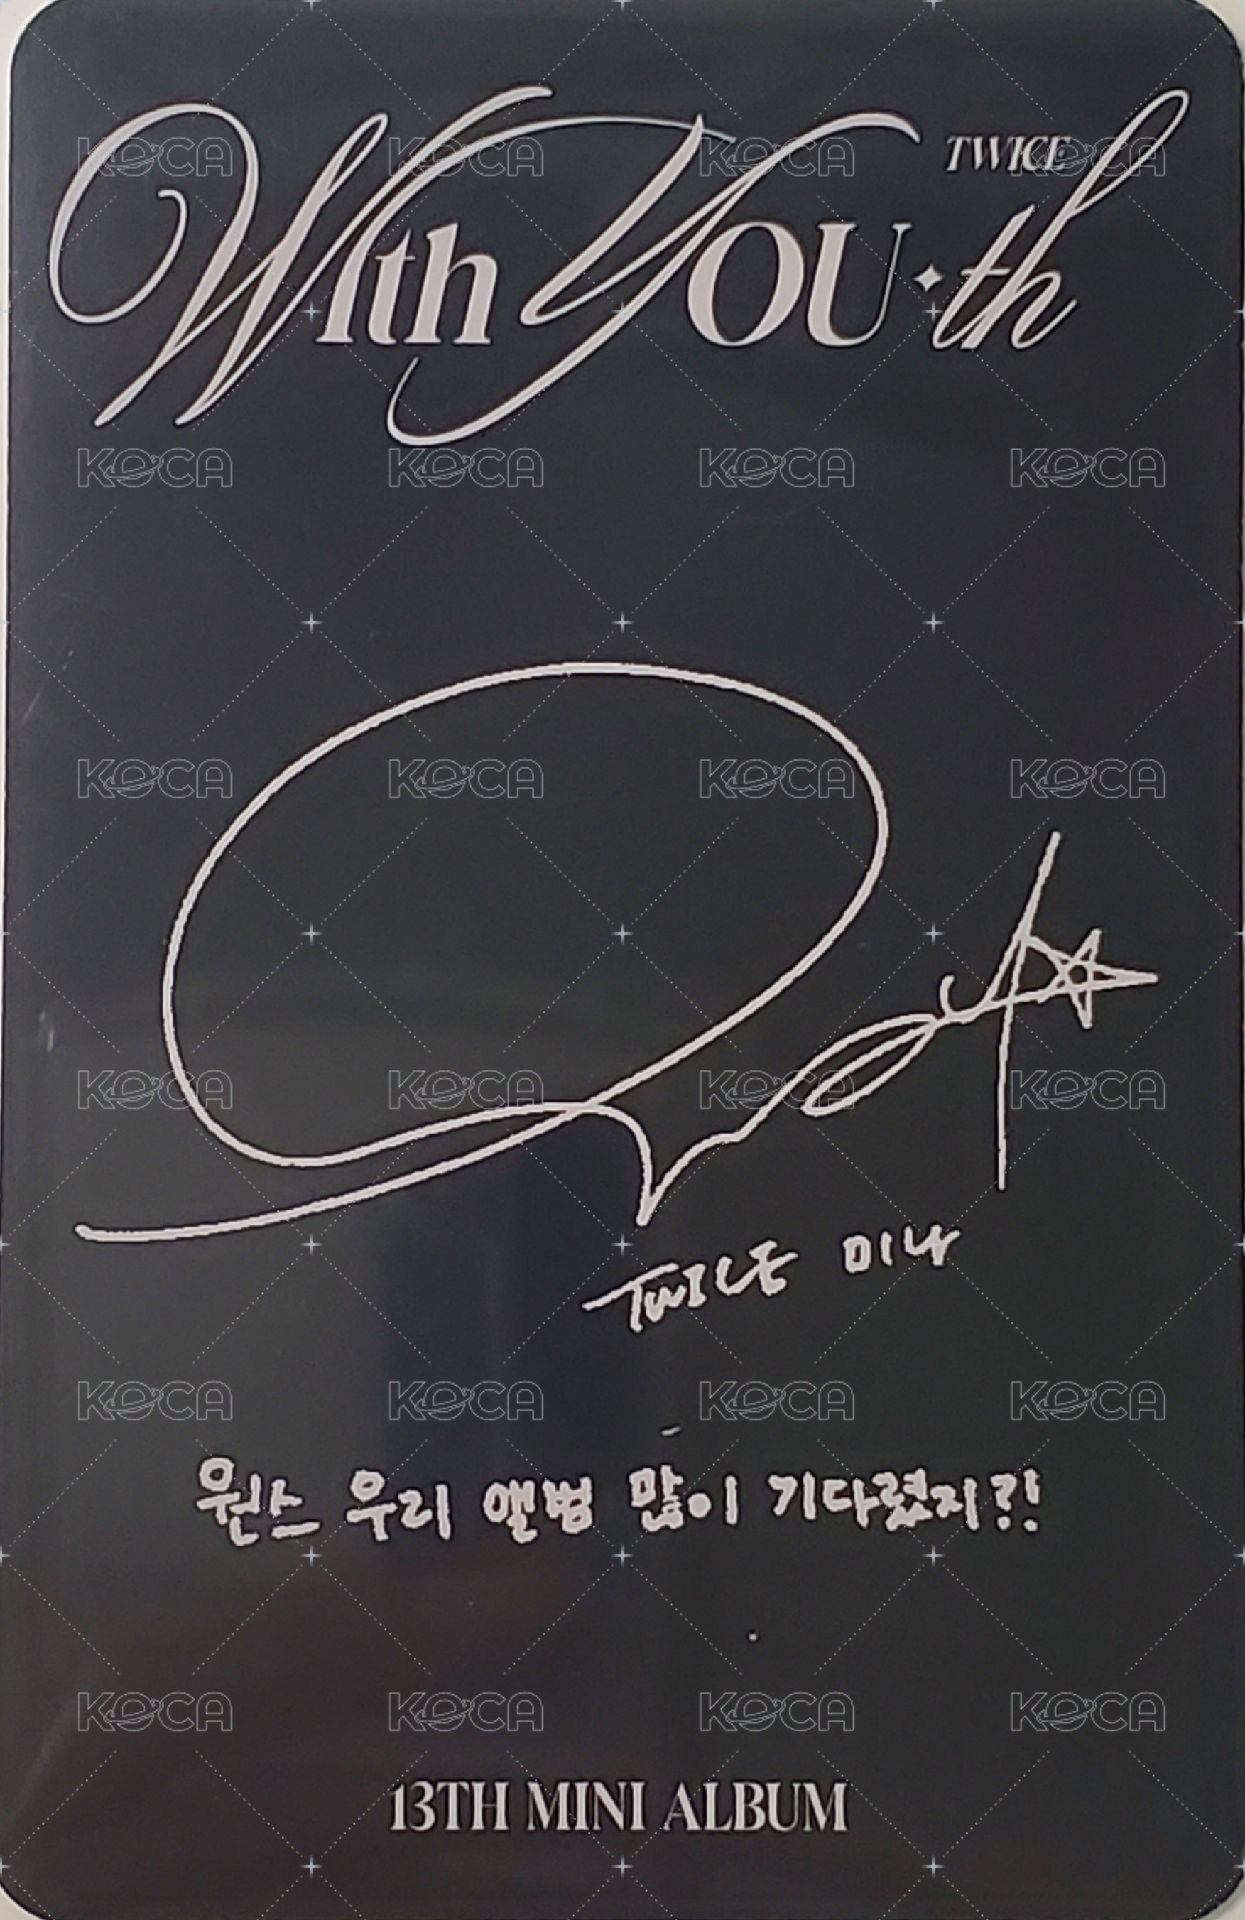 TWICE
With YOU-th
TWICE 미나
원스 우리 앨범 많이 기다렸지?!
13TH MINI ALBUM
KOCA KOCA KOCA KOCA
KOCA KOCA KOCA KOCA
KOCA KOCA KOCA KOCA
KOCA KOCA KOCA KOCA
KOCA KOCA KOCA KOCA
KOCA KOCA KOCA KOCA